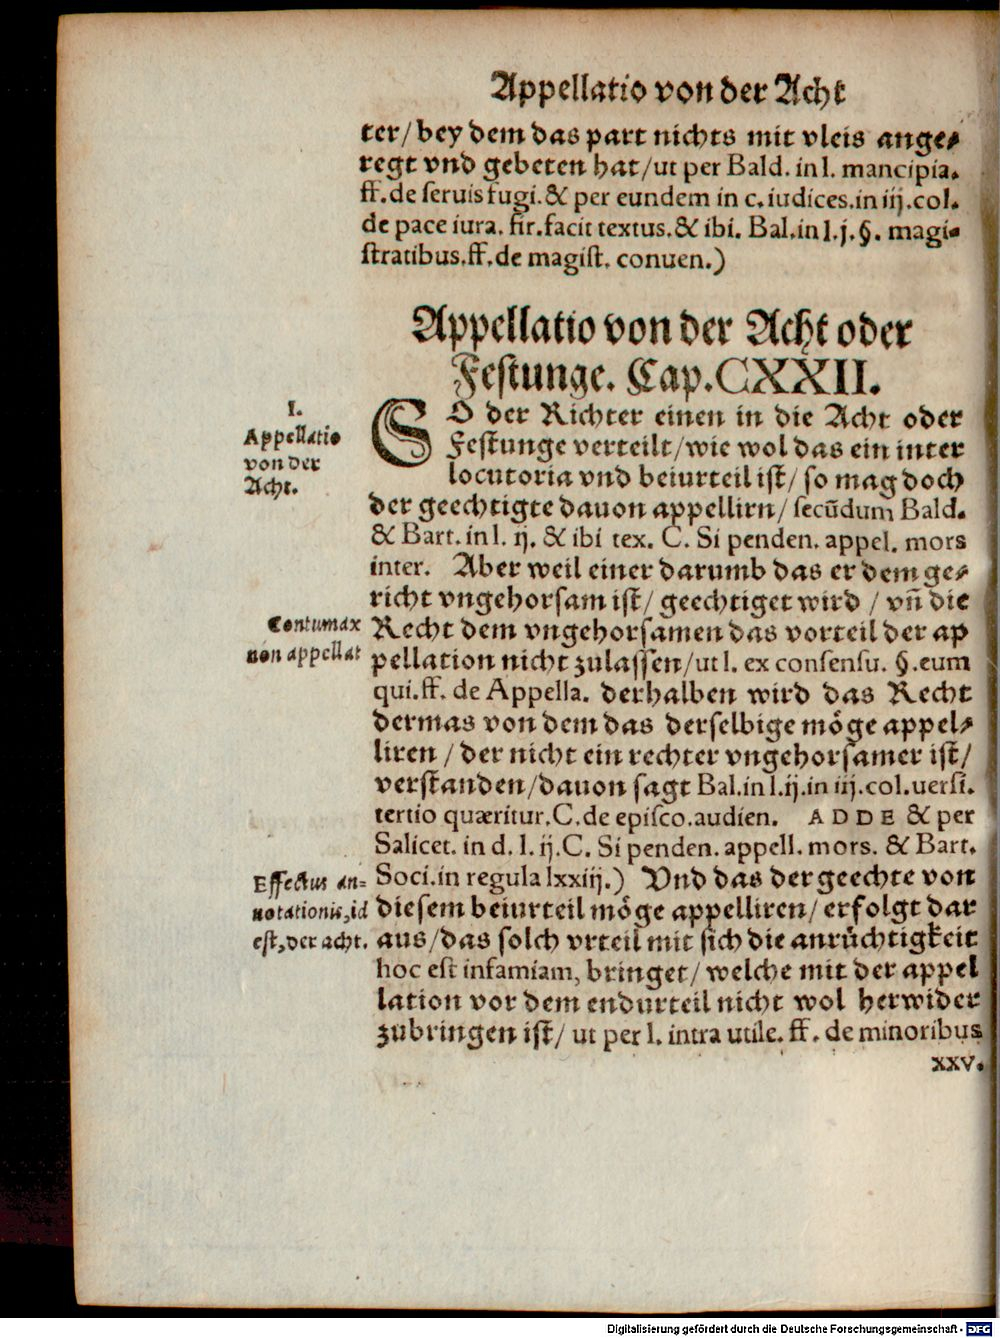 Appellatio von der Acht
ter/bey dem das part nichts mit vleis ange⸗
regt vnd gebeten hat/ut per Bald. in l. mancipia.
ff. de seruis fugi. & per eundem in c. iudices. in iij. col.
de pace iura. fir. facit textus. & ibi. Bal. in l. j. §. magi⸗
stratibus. ff. de magist. conuen.)
Appellatio von der Acht oder
Festunge. Cap. CXXII.
I.
Appellatio
von der
Acht.
SO der Richter einen in die Acht oder
Festunge verteilt/wie wol das ein inter
locutoria vnd beiurteil ist/ so mag doch
der geechtigte dauon appellirn/ secūdum Bald.
& Bart. in l. ij. & ibi tex. C. Si penden. appel. mors
inter. Aber weil einer darumb das er dem ge⸗
richt vngehorsam ist/ geechtiget wird / vñ die
Contumax
non appellat
Recht dem vngehorsamen das vorteil der ap
pellation nicht zulassen/ut l. ex consensu. §. eum
qui. ff. de Appella. derhalben wird das Recht
dermas von dem das derselbige möge appel⸗
liren / der nicht ein rechter vngehorsamer ist/
verstanden/dauon sagt Bal. in l. ij. in iij. col. uersi.
tertio quæritur. C. de episco. audien. ADDE & per
Salicet. in d. l. ij. C. Si penden. appell. mors. & Bart.
Effectus an-
notationis, id
est, der acht.
Soci. in regula lxxiij.) Vnd das der geechte von
diesem beiurteil möge appelliren/ erfolgt dar
aus/das solch vrteil mit sich die anrüchtigkeit
hoc est infamiam, bringet/ welche mit der appel
lation vor dem endurteil nicht wol herwider
zubringen ist/ ut per l. intra utile. ff. de minoribus
xxv.
Digitalisierung gefördert durch die Deutsche Forschungsgemeinschaft - DFG